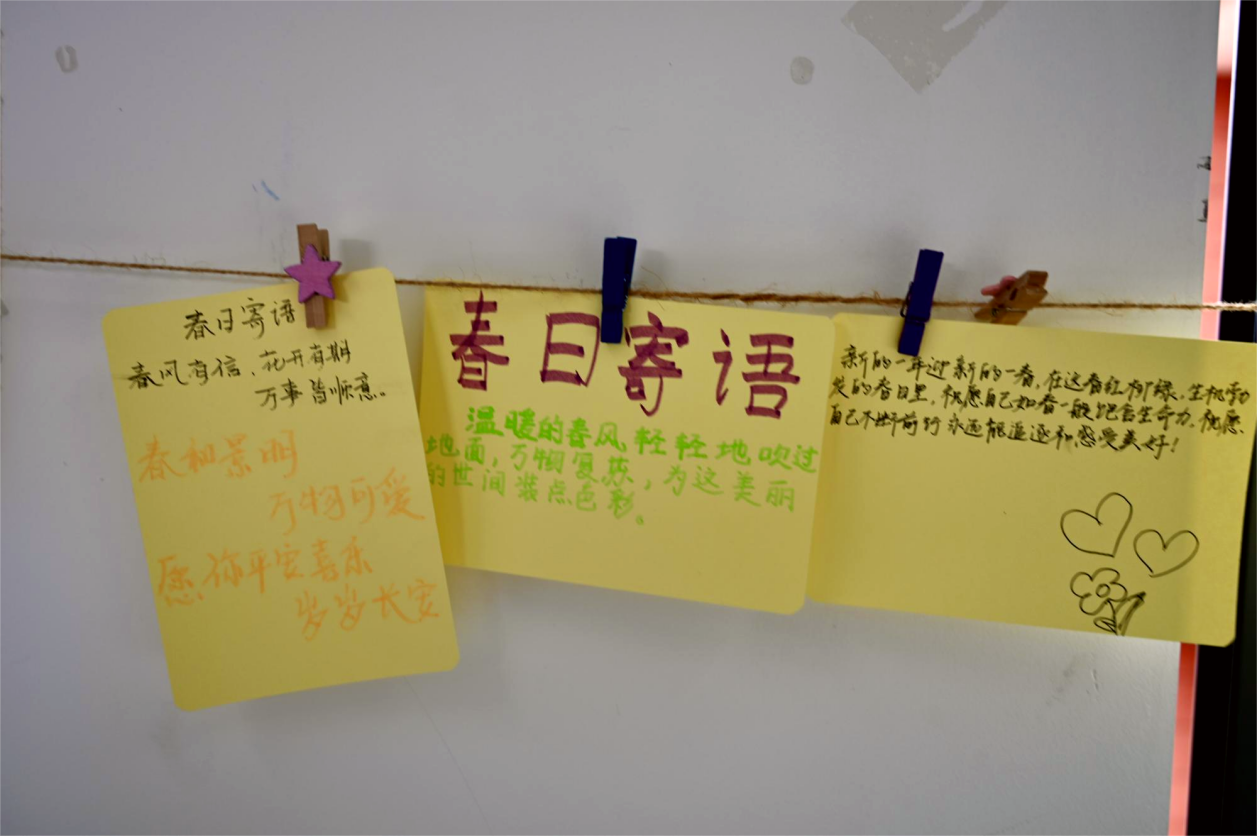 春日寄语
春风有信，花开有期
万事皆顺意。
春和景明
万物可爱
愿你平安喜乐
岁岁长安
春日寄语
温暖的春风轻轻地吹过
地面，万物复苏，为这美丽
的世间装点色彩。
新的一年迎新的一春，在这春红柳绿，生机勃
发的春日里，祝愿自己如春一般饱含生命力，祝愿
自己不断前行永远能追逐和感受美好！